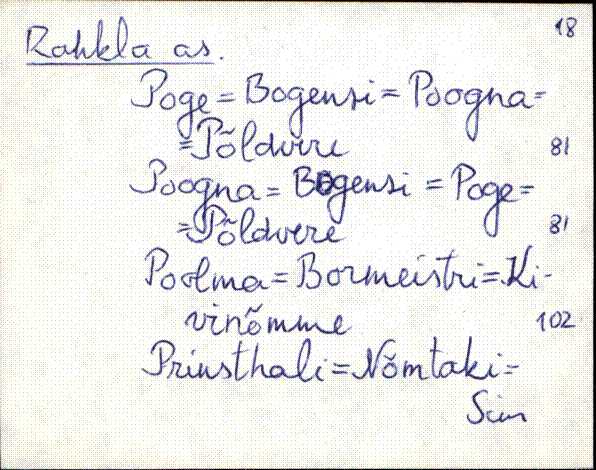 18
Rahkla as.
Poge = Bogensi = Poogna =
= Põldvere 81
Poogna = Bogensi = Poge =
= Põldvere 81
Poolma = Bormeistri = Ki-
vinõmme 102
Priusthali = Nõmtaki =